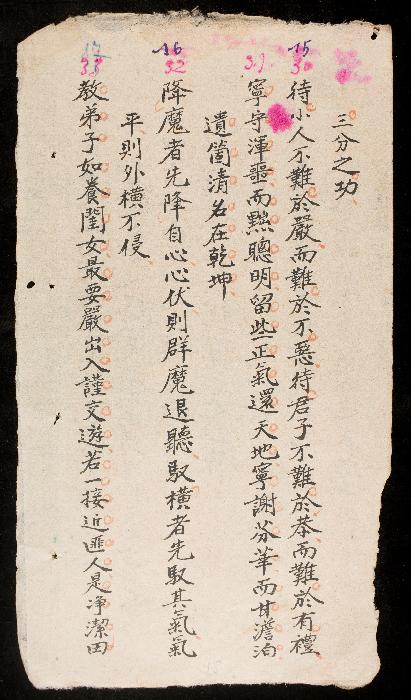 三分之功
15 30
待小人不難於嚴而難於不惡待君子不難於恭而難於有禮
31
寧守渾噩而黜聰明留些正氣還天地寧謝芬華而甘澹泊
遺箇清名在乾坤
16 32
降魔者先降自心心伏則群魔退聽馭橫者先馭其氣氣
平則外橫不侵
17 33
教弟子如養閨女最要嚴出入謹交遊若一接近匪人是净潔田